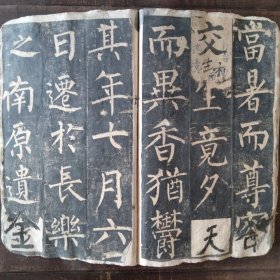 當暑而尊容
交生竟夕天
而異香猶欝
其年七月六
日遷於長樂
之南原遺金